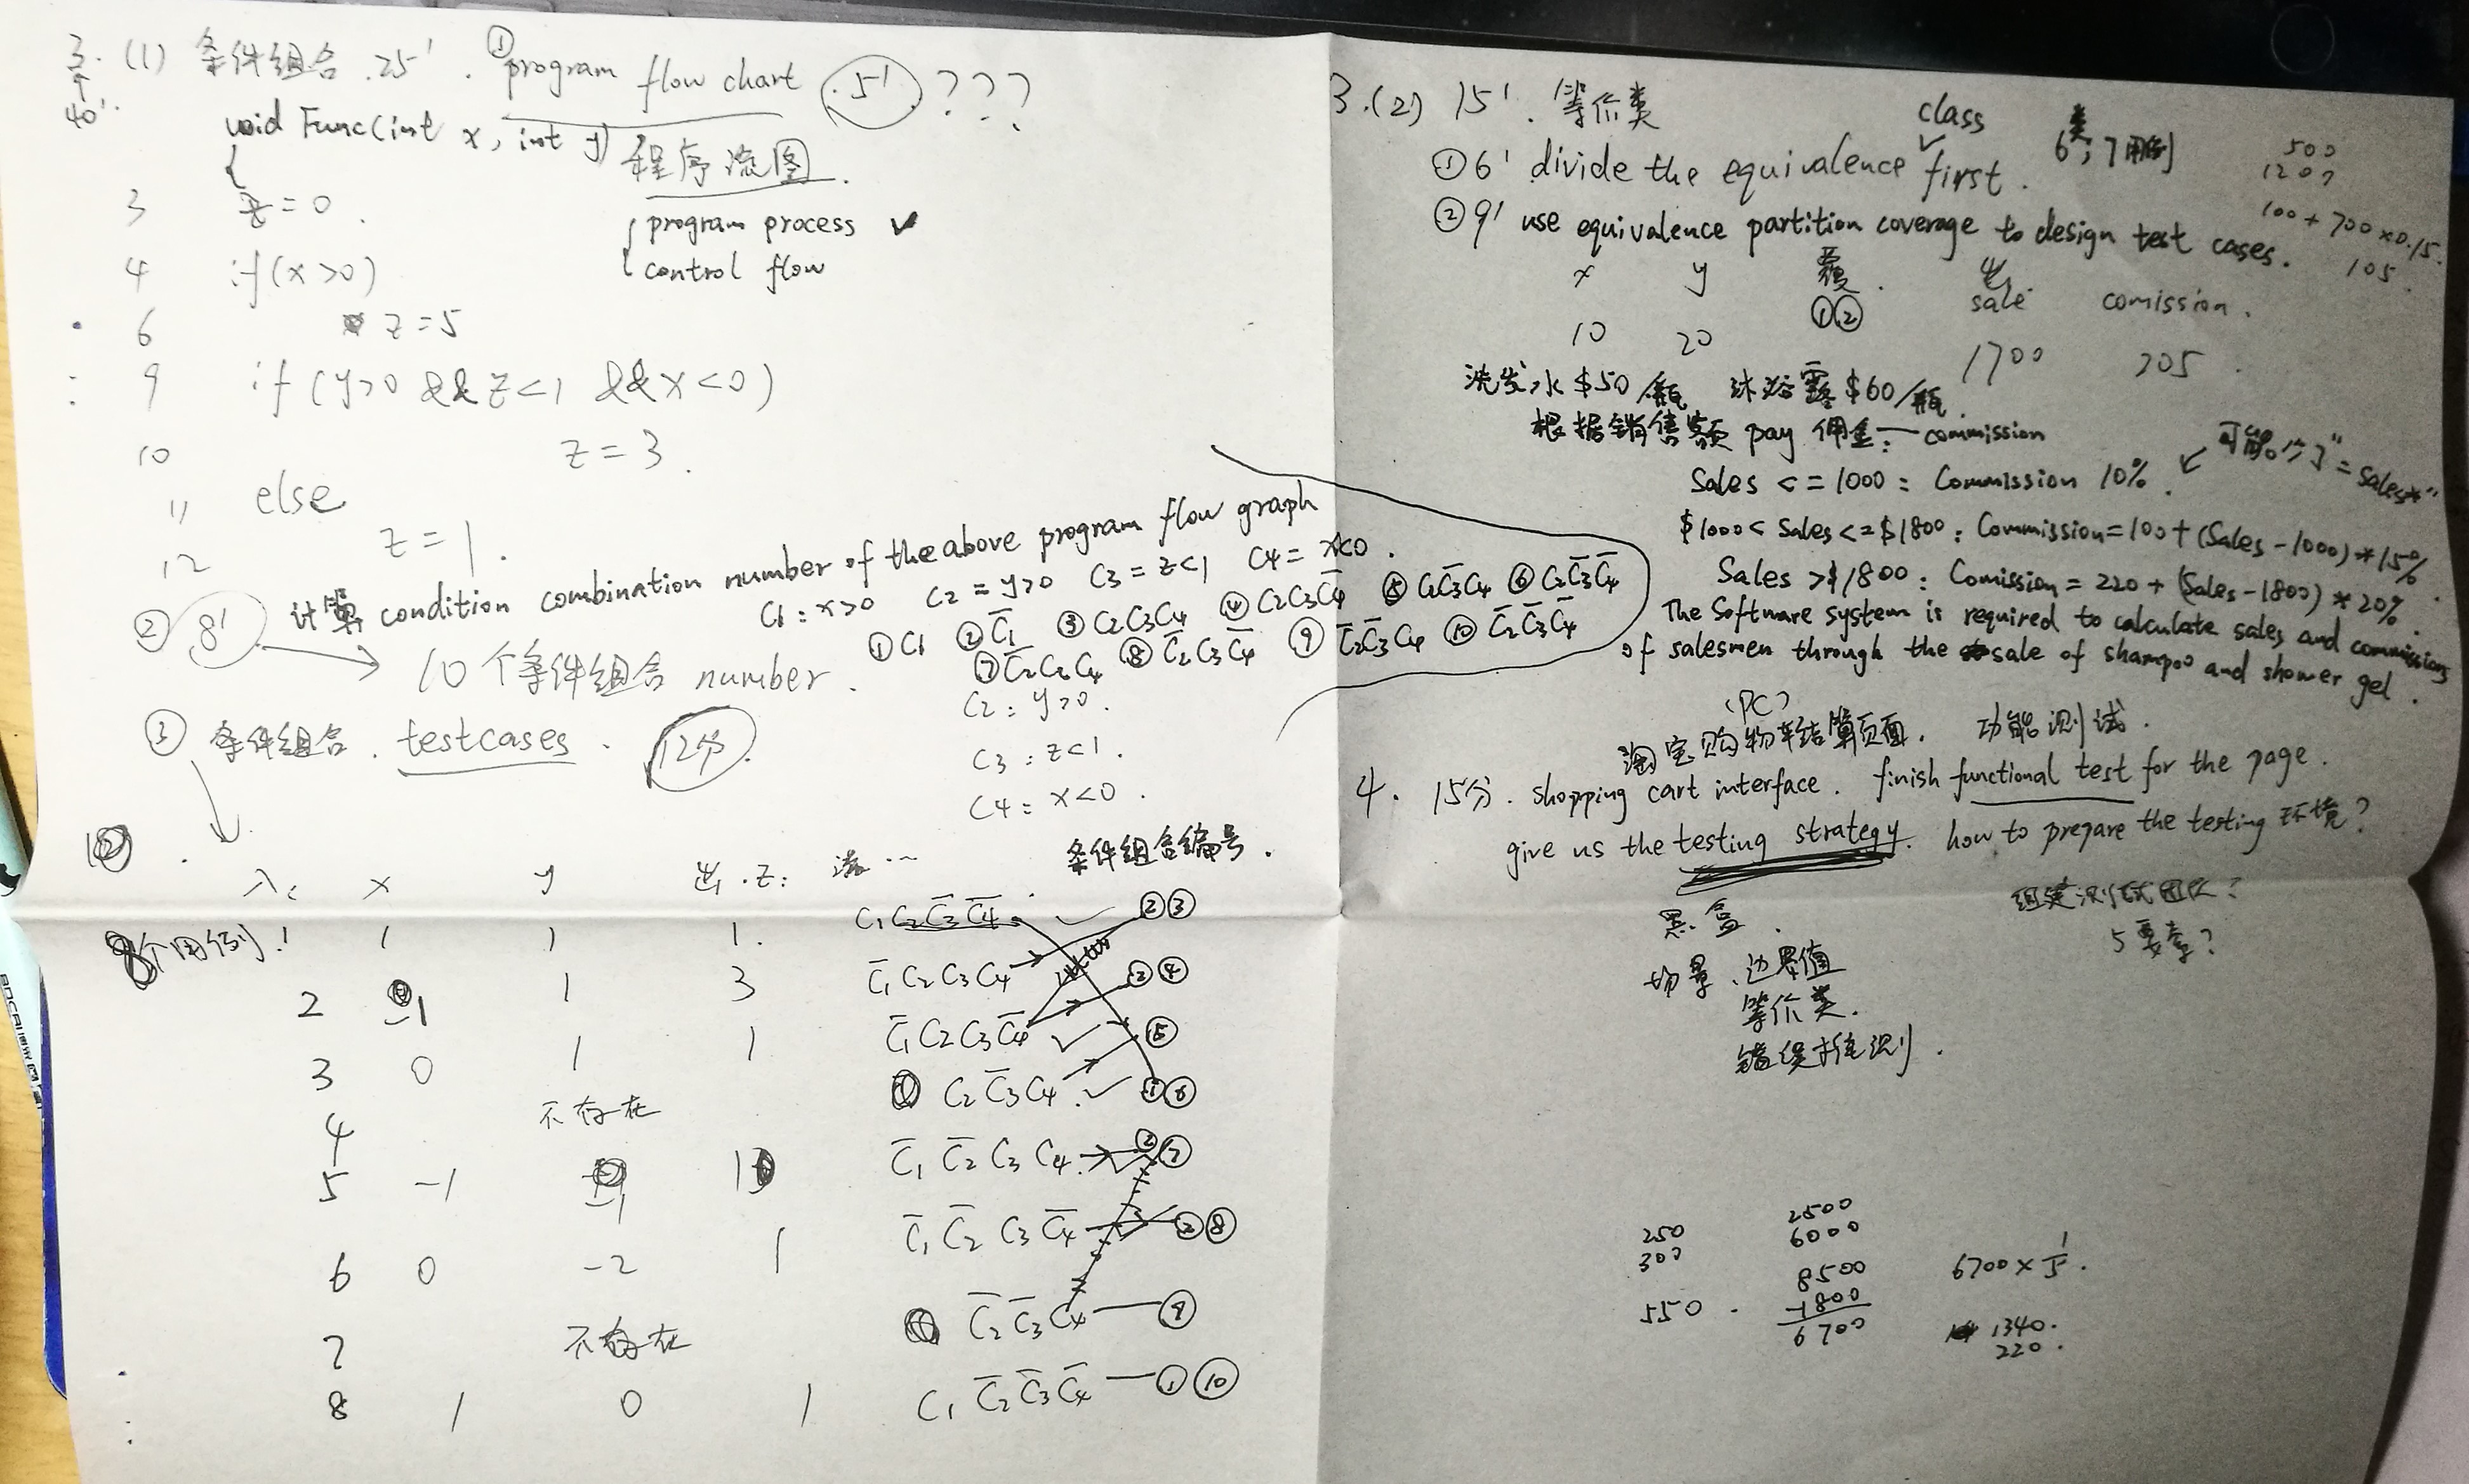 3. (1) 条件组合 .25' . ①program flow chart (.5') ???
↑
40'.
void Func(int x, int y)
{
程序流图.
3 z=0 .
program process ✓
control flow
4 if(x>0)
6 z=5
9 if (y>0 && z<1 && x<0)
10 z=3.
11 else
12 z=1.
② 8' → 计算 condition combination number of the above program flow graph
C1: x>0 C2=y>0 C3=z<1 C4=x<0.
①C1 ②C̅1 ③C2C3C4 ④C2C3C̅4 ⑤C2C̅3C4 ⑥C2C̅3C̅4
⑦C̅2C3C4 ⑧C̅2C3C̅4 ⑨C̅2C̅3C4 ⑩C̅2C̅3C̅4
10个条件组合 number.
C2: y>0.
③ 条件组合. testcases . 12分.
C3: z<1.
C4: x<0.
入: x y 出.z: 条件组合编号.
8个用例! 1 1 1. C1C2C̅3C̅4 ②③
2 -1 1 3 C̅1C2C3C4 ②④
3 0 1 1 C̅1C2C3C̅4 ⑤
4 不存在 C2C̅3C4 ①⑥
5 -1 -1 1 C̅1C̅2C3C4 ②⑦
6 0 -2 1 C̅1C̅2C3C̅4 ②⑧
7 不存在 C̅2C̅3C4 ⑨
8 1 0 1 C1C̅2C̅3C̅4 ①⑩
3.(2) 15'. 等价类
①6' divide the equivalence class first.
6类; 7用例
500
1200
100+700×0.15.
105
②9' use equivalence partition coverage to design test cases.
x y 覆. 出 sale comission.
10 20 ①② 1700 205
洗发水$50/瓶 沐浴露$60/瓶.
根据销售额 pay 佣金:—commission
Sales <=1000: Commission 10%. ← 可能少了"=sales*"
$1000< Sales <=$1800: Commission=100+(Sales-1000)*15%
Sales >$1800: Comission=220+(Sales-1800)*20%.
The Software system is required to calculate sales and commissions
of salesmen through the sale of shampoo and shower gel.
(PC)
淘宝购物车结算页面. 功能测试.
4. 15分. shopping cart interface. finish functional test for the page.
give us the testing strategy. how to prepare the testing 环境?
黑盒. 组建测试团队?
5要素?
场景、边界值
等价类.
错误推测.
250
300
550
2500
6000
8500
-1800
6700
6700×1/5.
1340.
220.